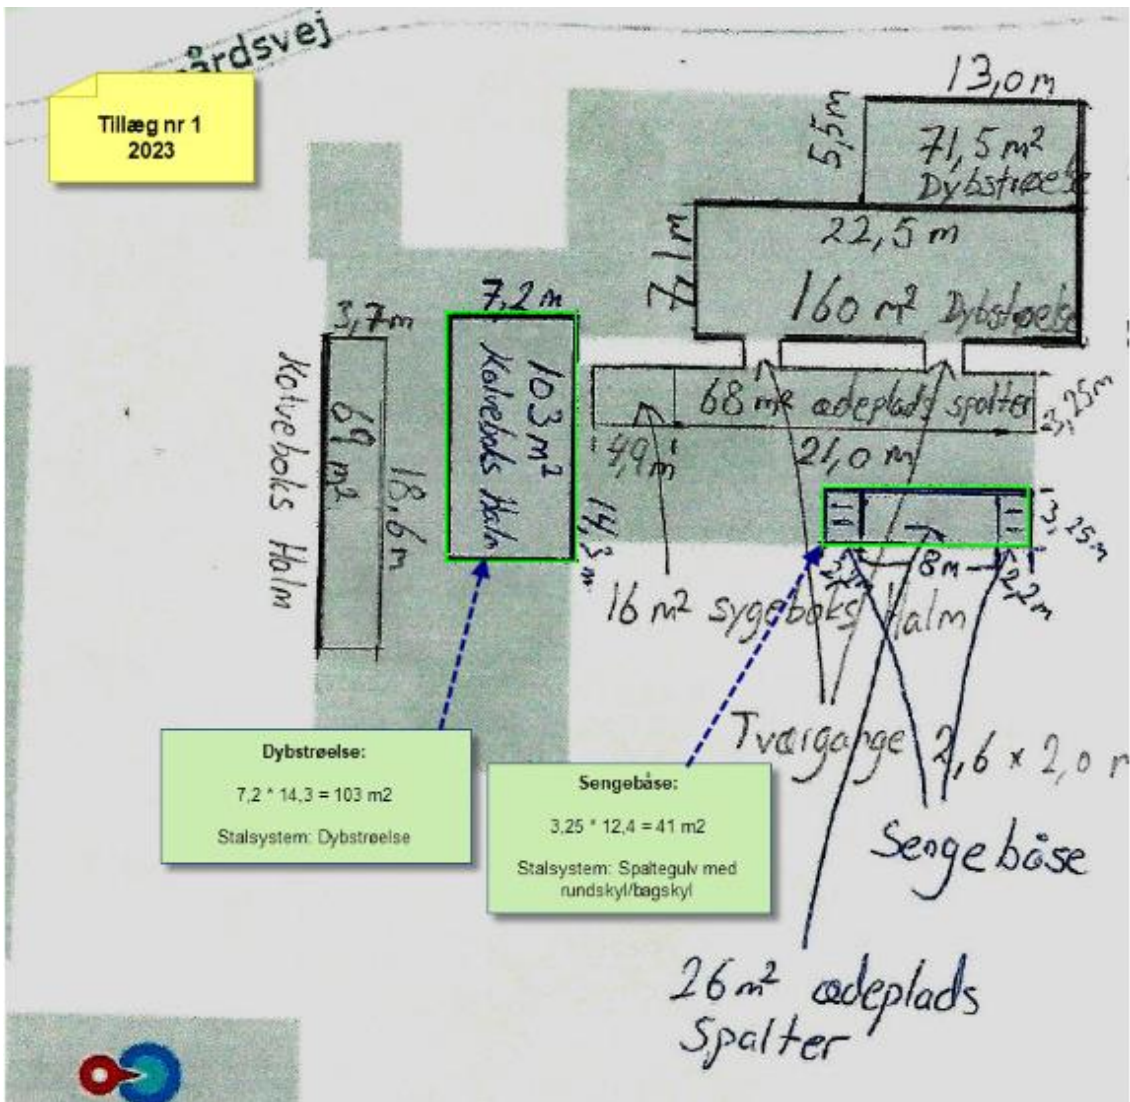 årdsvej
Tillæg nr 1
2023
13,0 m
5,5m
71,5 m²
Dybstrøelse
22,5 m
7,1m
160 m² Dybstrøelse
3,7m
69 m²
18,6m
Kalveboks Halm
7,2 m
103 m²
Kalveboks Halm
14,3 m
68 m² ædeplads spalter
3,25m
4,9m
21,0 m
3,25m
2,2m
8m
2,2m
16 m² sygeboks Halm
Tværgange 2,6 × 2,0 m
Sengebåse
26 m² ædeplads
Spalter
Dybstrøelse:
7,2 * 14,3 = 103 m2
Stalsystem: Dybstrøelse
Sengebåse:
3,25 * 12,4 = 41 m2
Stalsystem: Spaltegulv med
rundskyl/bagskyl